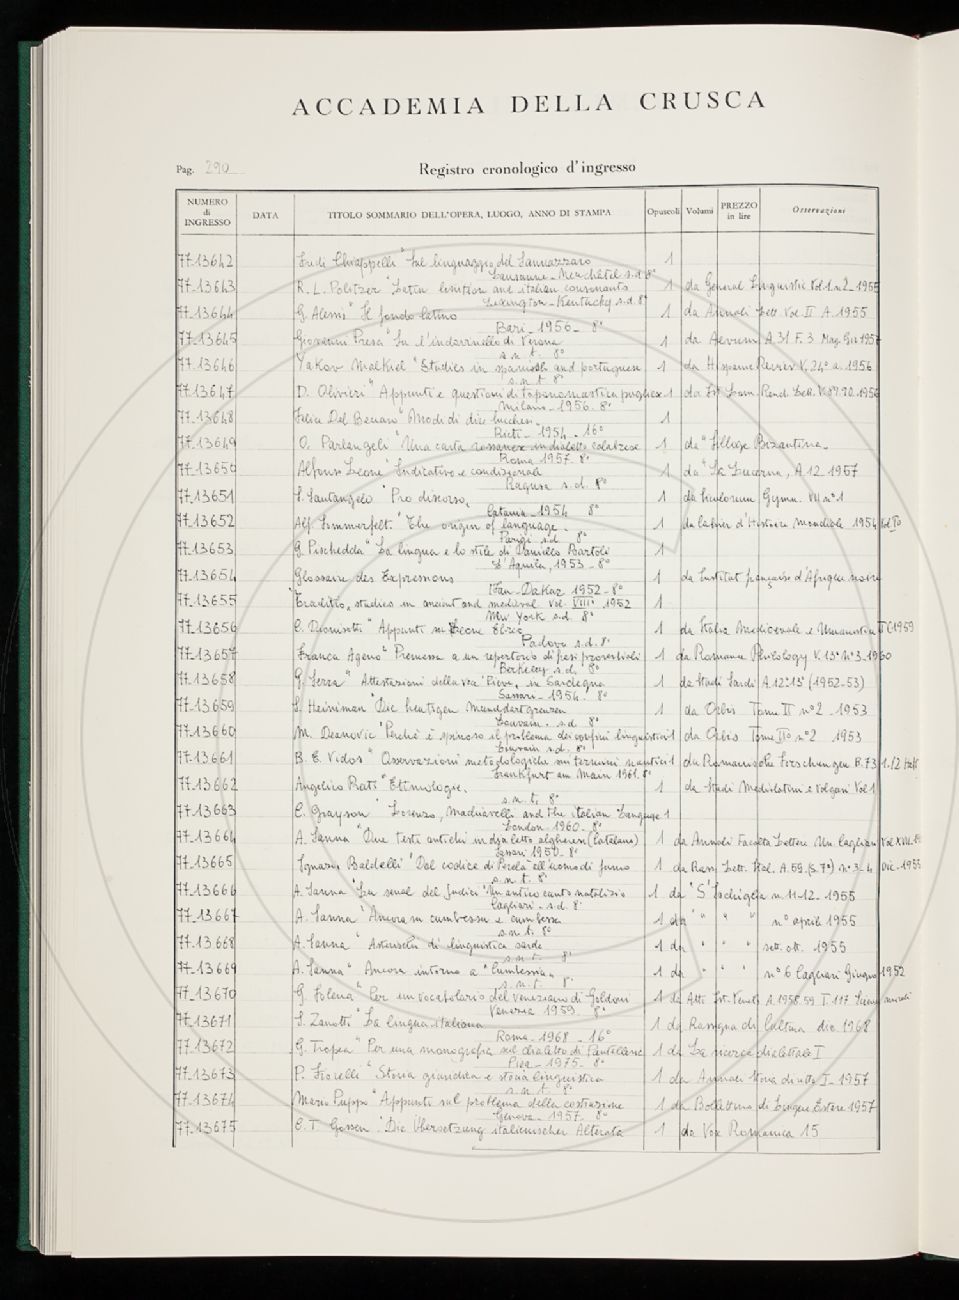 ACCADEMIA DELLA CRUSCA
Pag. 290 Registro cronologico d'ingresso
NUMERO di INGRESSO DATA TITOLO SOMMARIO DELL'OPERA, LUOGO, ANNO DI STAMPA Opuscoli Volumi PREZZO in lire Osservazioni
77-13642 Fredi Chiappelli "Sul linguaggio del Sannazzaro 1
Lausanne - Neuchâtel s.d. 8°
77-13643 R. L. Politzer "Latin lenition and italian consonants 1 da General Linguistic Vol. 1 n° 2 - 1955
Lexington - Kentucky s.d. 8°
77-13644 G. Alessi "Il fondo latino 1 da Annali Lett. Vol II A. 1955
Bari - 1956 - 8°
77-13645 Giovanni Presa "Su l'indovinello di Verona 1 da Aevum A 31 F. 3 Mag. Giu 1957
s.n.t. 8°
77-13646 Yakov Malkiel "Studies in spanish and portuguese 1 da Hispanic Review V. 24° a. 1956
s.n.t. 8°
77-13647 D. Olivieri "Appunti e questioni di toponomastica pugliese 1 da Ist. Lom. Rend. Lett. V. 89.90. 1956
Milano - 1956. 8°
77-13648 Felice Del Beccaro "Modi di dire lucchesi 1
Rieti - 1954 - 16°
77-13649 O. Parlangeli "Una carta rossanese in dialetto calabrese 1 da "Silloge Bizantina
Roma 1957. 8°
77-13650 Alfonso Leone "Indicativo e condizionale 1 da "La Lucerna, A. 12 - 1957
Ragusa s.d. 8°
77-13651 S. Santangelo "Pro discorso, 1 da Siculorum Gymn. VII n° 1
Catania - 1954 8°
77-13652 Alf. Sommerfelt "The origin of language - 1 da Cahier d'Histoire Mondiale 1954 Vol I°
Parigi s.d 8°
77-13653 G. Pischedda "La lingua e lo stile di Daniello Bartoli 1
L'Aquila, 1953 - 8°
77-13654 Glossaire des Expressions 1 da Institut française d'Afrique noire
Ifan - Dakar 1952 - 8°
77-13655 "Traditio, studies in ancient and medieval vol. VIII° 1952 1
New York s.d. 8°
77-13656 C. Dionisotti "Appunti su Leone Ebreo 1 da Italia Medioevale e Umanistica II (1959
Padova s.d. 8°
77-13657 Franca Ageno "Premessa a un repertorio di frasi proverbiali 1 da Romance Philology V. 13° n° 3 - 1960
Berkeley s.d. 8°
77-13658 G. Serra "Attestazioni della voce 'Pieve, in Sardegna 1 da Studi Sardi A. 12° 13° (1952-53)
Sassari - 1954. 8°
77-13659 S. Heiniman "Die heutigen Mundartgrenzen 1 da Orbis Tome II n° 2 - 1953
Louvain - s.d 8°
77-13660 M. Deanovic "Perché è spinoso il problema dei confini linguistici 1 da Orbis Tome II° n° 2 1953
Louvain s.d. 8°
77-13661 B. E. Vidos "Osservazioni metodologiche sui termini nautici 1 da Romanische Forschungen B. 73 1./2 Heft
Frankfurt am Main 1961. 8°
77-13662 Angelico Prati "Etimologie. 1 da Studi Mediolatini e Volgari Vol 1
s.n.t. 8°
77-13663 C. Grayson "Lorenzo, Machiavelli and the italian Language 1
London - 1960 - 8°
77-13664 A. Sanna "Due testi antichi in dialetto algherese (Catalano) 1 da Annali Facoltà Lettere Un. Cagliari Vol XVII
Sassari 1950 - 8°
77-13665 Ignazio Baldelli "Dal codice di Perelà all'uomo di fumo 1 da Rass. Lett. Ital. A. 59 (s. 7°) n° 3-4 Dic. 1955
s.n.t. 8°
77-13666 A. Sanna "Su senal del Judici "Un antico canto natalizio 1 da "S'Ischiglia n. 11-12 - 1955
Cagliari - s.d. 8°
77-13667 A. Sanna "Ancora su cumbessu e cumbesse 1 da " " " n° aprile 1955
s.n.t. 8°
77-13668 A. Sanna "Asterischi di linguistica sarda 1 da " " " sett. ott. 1955
s.n.t. 8°
77-13669 A. Sanna "Ancora intorno a "Cumbessia" 1 da " " " n° 6 Cagliari Giugno 1952
s.n.t. 8°
77-13670 G. Folena "Per un vocabolario del veneziano di Goldoni 1 da Atti Ist. Veneto A. 1958-59 T. 117 Scienze morali
Venezia 1959. 8°
77-13671 S. Zanotti "La lingua italiana 1 da Rassegna di Cultura dic. 1968
Roma - 1968 - 16°
77-13672 G. Tropea "Per una monografia sul dialetto di Pantelleria 1 da La ricerca dialettale I
Pisa - 1975 - 8°
77-13673 P. Fiorelli "Storia giuridica e storia linguistica 1 da Annali storia diritto I - 1957
s.n.t. 8°
77-13674 Mario Puppo "Appunti sul problema della costruzione 1 da Bollettino di Lingue Estere 1957
Genova - 1957. 8°
77-13675 C. T. Gossen "Die Übersetzung italienischer Alterata 1 da Vox Romanica 15